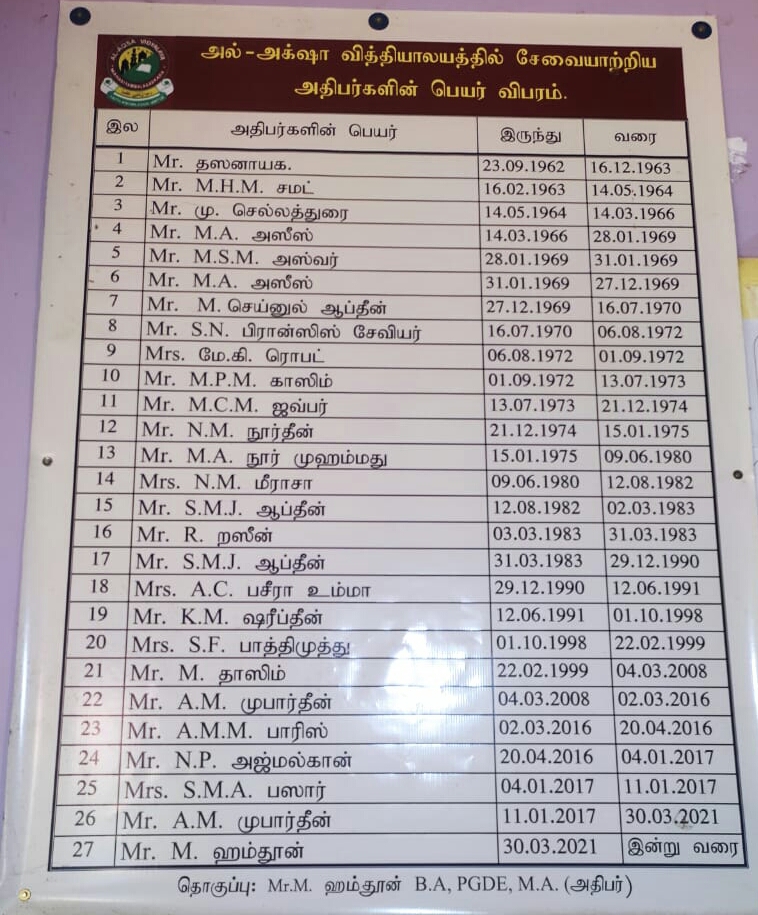 அல்-அக்ஷா வித்தியாலயத்தில் சேவையாற்றிய
அதிபர்களின் பெயர் விபரம்.
இல அதிபர்களின் பெயர் இருந்து வரை
1 Mr. தஸனாயக. 23.09.1962 16.12.1963
2 Mr. M.H.M. சமட் 16.02.1963 14.05.1964
3 Mr. மு. செல்லத்துரை 14.05.1964 14.03.1966
4 Mr. M.A. அஸீஸ் 14.03.1966 28.01.1969
5 Mr. M.S.M. அஸ்வர் 28.01.1969 31.01.1969
6 Mr. M.A. அஸீஸ் 31.01.1969 27.12.1969
7 Mr. M. செய்னுல் ஆப்தீன் 27.12.1969 16.07.1970
8 Mr. S.N. பிரான்ஸிஸ் சேவியர் 16.07.1970 06.08.1972
9 Mrs. மே.கி. ரொபட் 06.08.1972 01.09.1972
10 Mr. M.P.M. காஸிம் 01.09.1972 13.07.1973
11 Mr. M.C.M. ஜவ்பர் 13.07.1973 21.12.1974
12 Mr. N.M. நூர்தீன் 21.12.1974 15.01.1975
13 Mr. M.A. நூர் முஹம்மது 15.01.1975 09.06.1980
14 Mrs. N.M. மீராசா 09.06.1980 12.08.1982
15 Mr. S.M.J. ஆப்தீன் 12.08.1982 02.03.1983
16 Mr. R. றஸீன் 03.03.1983 31.03.1983
17 Mr. S.M.J. ஆப்தீன் 31.03.1983 29.12.1990
18 Mrs. A.C. பசீரா உம்மா 29.12.1990 12.06.1991
19 Mr. K.M. ஷரீப்தீன் 12.06.1991 01.10.1998
20 Mrs. S.F. பாத்திமுத்து 01.10.1998 22.02.1999
21 Mr. M. தாஸிம் 22.02.1999 04.03.2008
22 Mr. A.M. முபார்தீன் 04.03.2008 02.03.2016
23 Mr. A.M.M. பாரிஸ் 02.03.2016 20.04.2016
24 Mr. N.P. அஜ்மல்கான் 20.04.2016 04.01.2017
25 Mrs. S.M.A. பஸார் 04.01.2017 11.01.2017
26 Mr. A.M. முபார்தீன் 11.01.2017 30.03.2021
27 Mr. M. ஹம்தூன் 30.03.2021 இன்று வரை
தொகுப்பு: Mr.M. ஹம்தூன் B.A, PGDE, M.A. (அதிபர்)